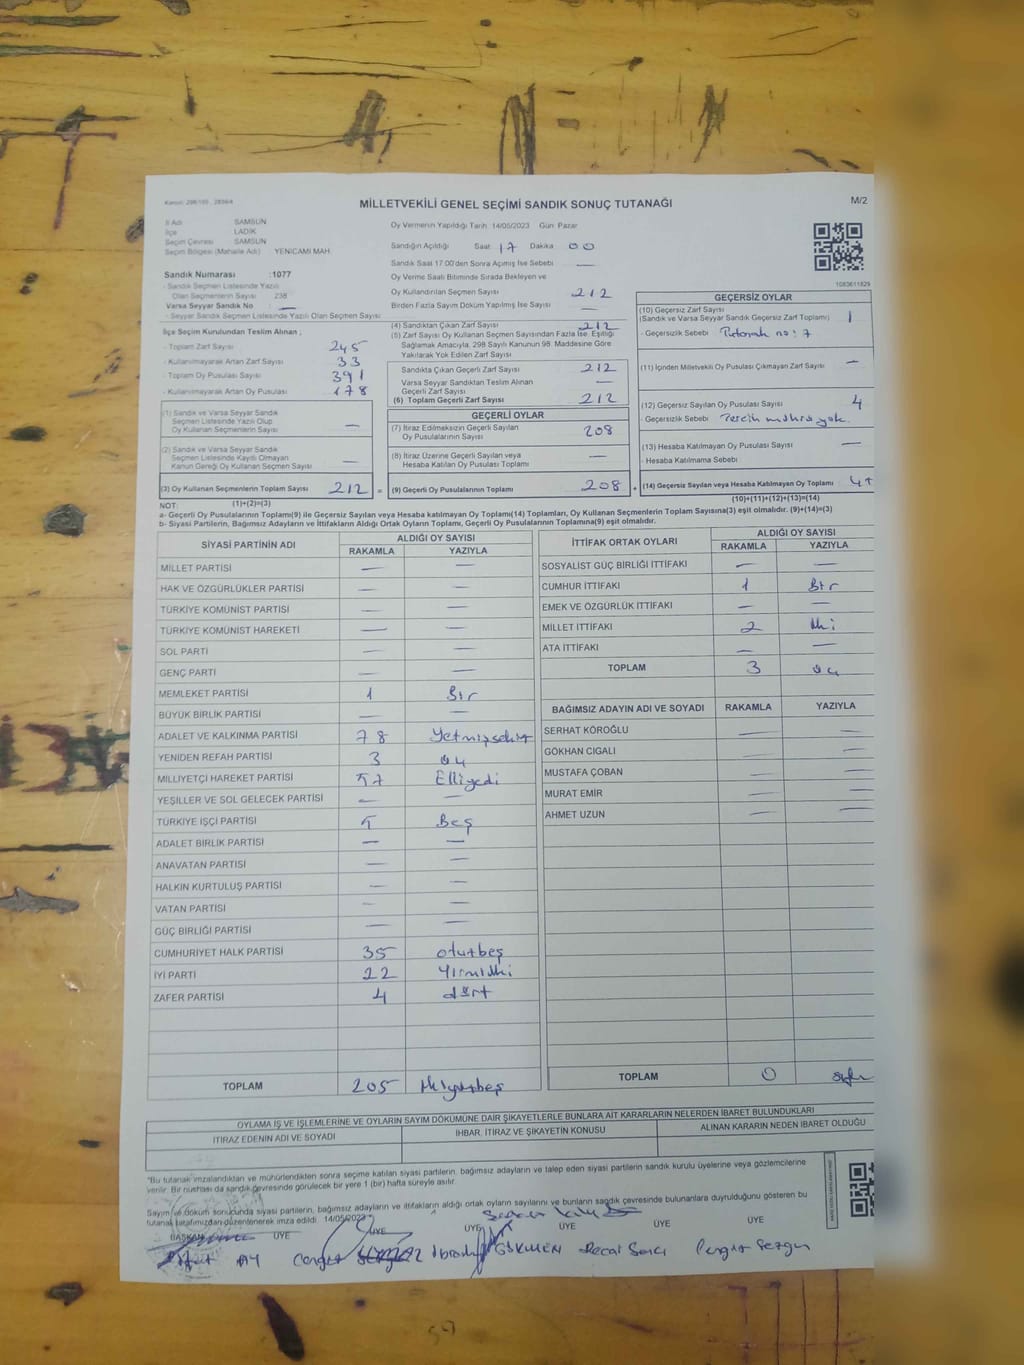 MİLLETVEKİLİ GENEL SEÇİMİ SANDIK SONUÇ TUTANAĞI
M/2
İl Adı SAMSUN
İlçe LADİK
Seçim Çevresi SAMSUN
Seçim Bölgesi (Mahalle Adı) YENİCAMİ MAH.
Oy Vermenin Yapıldığı Tarih 14/05/2023 Gün: Pazar
Sandığın Açıldığı Saat 17 Dakika 00
Sandık Saat 17:00'den Sonra Açılmış İse Sebebi —
Oy Verme Saati Bitiminde Sırada Bekleyen ve
Oy Kullandırılan Seçmen Sayısı 212
Birden Fazla Sayım Döküm Yapılmış İse Sayısı —
Sandık Numarası :1077
- Sandık Seçmen Listesinde Yazılı
Olan Seçmenlerin Sayısı 238
Varsa Seyyar Sandık No —
- Seyyar Sandık Seçmen Listesinde Yazılı Olan Seçmen Sayısı
1083611829
İlçe Seçim Kurulundan Teslim Alınan ;
- Toplam Zarf Sayısı 245
- Kullanılmayarak Artan Zarf Sayısı 33
- Toplam Oy Pusulası Sayısı 391
- Kullanılmayarak Artan Oy Pusulası 178
(1) Sandık ve Varsa Seyyar Sandık
Seçmen Listesinde Yazılı Olup
Oy Kullanan Seçmenlerin Sayısı —
(2) Sandık ve Varsa Seyyar Sandık
Seçmen Listesinde Kayıtlı Olmayan
Kanun Gereği Oy Kullanan Seçmen Sayısı —
(3) Oy Kullanan Seçmenlerin Toplam Sayısı 212 =
(1)+(2)=(3)
(4) Sandıktan Çıkan Zarf Sayısı 212
(5) Zarf Sayısı Oy Kullanan Seçmen Sayısından Fazla İse, Eşitliği
Sağlamak Amacıyla, 298 Sayılı Kanunun 98. Maddesine Göre
Yakılarak Yok Edilen Zarf Sayısı
Sandıkta Çıkan Geçerli Zarf Sayısı 212
Varsa Seyyar Sandıktan Teslim Alınan
Geçerli Zarf Sayısı —
(6) Toplam Geçerli Zarf Sayısı 212
GEÇERLİ OYLAR
(7) İtiraz Edilmeksizin Geçerli Sayılan
Oy Pusulalarının Sayısı 208
(8) İtiraz Üzerine Geçerli Sayılan veya
Hesaba Katılan Oy Pusulası Toplamı —
(9) Geçerli Oy Pusulalarının Toplamı 208 +
GEÇERSİZ OYLAR
(10) Geçersiz Zarf Sayısı
(Sandık ve Varsa Seyyar Sandık Geçersiz Zarf Toplamı) 1
- Geçersizlik Sebebi Tutanak no: 7
(11) İçinden Milletvekili Oy Pusulası Çıkmayan Zarf Sayısı —
(12) Geçersiz Sayılan Oy Pusulası Sayısı 4
- Geçersizlik Sebebi Tercih mührü yok.
(13) Hesaba Katılmayan Oy Pusulası Sayısı —
- Hesaba Katılmama Sebebi
(14) Geçersiz Sayılan veya Hesaba Katılmayan Oy Toplamı 4+
(10)+(11)+(12)+(13)=(14)
NOT:
a- Geçerli Oy Pusulalarının Toplamı(9) ile Geçersiz Sayılan veya Hesaba katılmayan Oy Toplamı(14) Toplamları, Oy Kullanan Seçmenlerin Toplam Sayısına(3) eşit olmalıdır. (9)+(14)=(3)
b- Siyasi Partilerin, Bağımsız Adayların ve İttifakların Aldığı Ortak Oyların Toplamı, Geçerli Oy Pusulalarının Toplamına(9) eşit olmalıdır.
SİYASİ PARTİNİN ADI ALDIĞI OY SAYISI
RAKAMLA YAZIYLA
MİLLET PARTİSİ — —
HAK VE ÖZGÜRLÜKLER PARTİSİ — —
TÜRKİYE KOMÜNİST PARTİSİ — —
TÜRKİYE KOMÜNİST HAREKETİ — —
SOL PARTİ — —
GENÇ PARTİ — —
MEMLEKET PARTİSİ 1 Bir
BÜYÜK BİRLİK PARTİSİ — —
ADALET VE KALKINMA PARTİSİ 78 Yetmişsekiz
YENİDEN REFAH PARTİSİ 3 üç
MİLLİYETÇİ HAREKET PARTİSİ 57 Elliyedi
YEŞİLLER VE SOL GELECEK PARTİSİ — —
TÜRKİYE İŞÇİ PARTİSİ 5 Beş
ADALET BİRLİK PARTİSİ — —
ANAVATAN PARTİSİ — —
HALKIN KURTULUŞ PARTİSİ — —
VATAN PARTİSİ — —
GÜÇ BİRLİĞİ PARTİSİ — —
CUMHURİYET HALK PARTİSİ 35 otuzbeş
İYİ PARTİ 22 Yirmiiki
ZAFER PARTİSİ 4 dört
TOPLAM 205 ikiyüzbeş
İTTİFAK ORTAK OYLARI ALDIĞI OY SAYISI
RAKAMLA YAZIYLA
SOSYALİST GÜÇ BİRLİĞİ İTTİFAKI — —
CUMHUR İTTİFAKI 1 Bir
EMEK VE ÖZGÜRLÜK İTTİFAKI — —
MİLLET İTTİFAKI 2 iki
ATA İTTİFAKI — —
TOPLAM 3 üç
BAĞIMSIZ ADAYIN ADI VE SOYADI RAKAMLA YAZIYLA
SERHAT KÖROĞLU — —
GÖKHAN CIGALI — —
MUSTAFA ÇOBAN — —
MURAT EMİR — —
AHMET UZUN — —
TOPLAM 0 sıfır
OYLAMA İŞ VE İŞLEMLERİNE VE OYLARIN SAYIM DÖKÜMÜNE DAİR ŞİKAYETLERLE BUNLARA AİT KARARLARIN NELERDEN İBARET BULUNDUKLARI
İTİRAZ EDENİN ADI VE SOYADI İHBAR, İTİRAZ VE ŞİKAYETİN KONUSU ALINAN KARARIN NEDEN İBARET OLDUĞU
*Bu tutanak imzalandıktan ve mühürlendikten sonra seçime katılan siyasi partilerin, bağımsız adayların ve talep eden siyasi partilerin sandık kurulu üyelerine veya gözlemcilerine
verilir. Bir nüshası da sandık çevresinde görülecek bir yere 1 (bir) hafta süreyle asılır.
Sayım ve döküm sonucunda siyasi partilerin, bağımsız adayların ve ittifakların aldığı ortak oyların sayılarını ve bunların sandık çevresinde bulunanlara duyrulduğunu gösteren bu
tutanak tarafımızdan düzenlenerek imza edildi. 14/05/2023
BAŞKAN ÜYE ÜYE ÜYE ÜYE ÜYE ÜYE
AY Cengiz İbrahim GÖKMEN Recai Sezgin